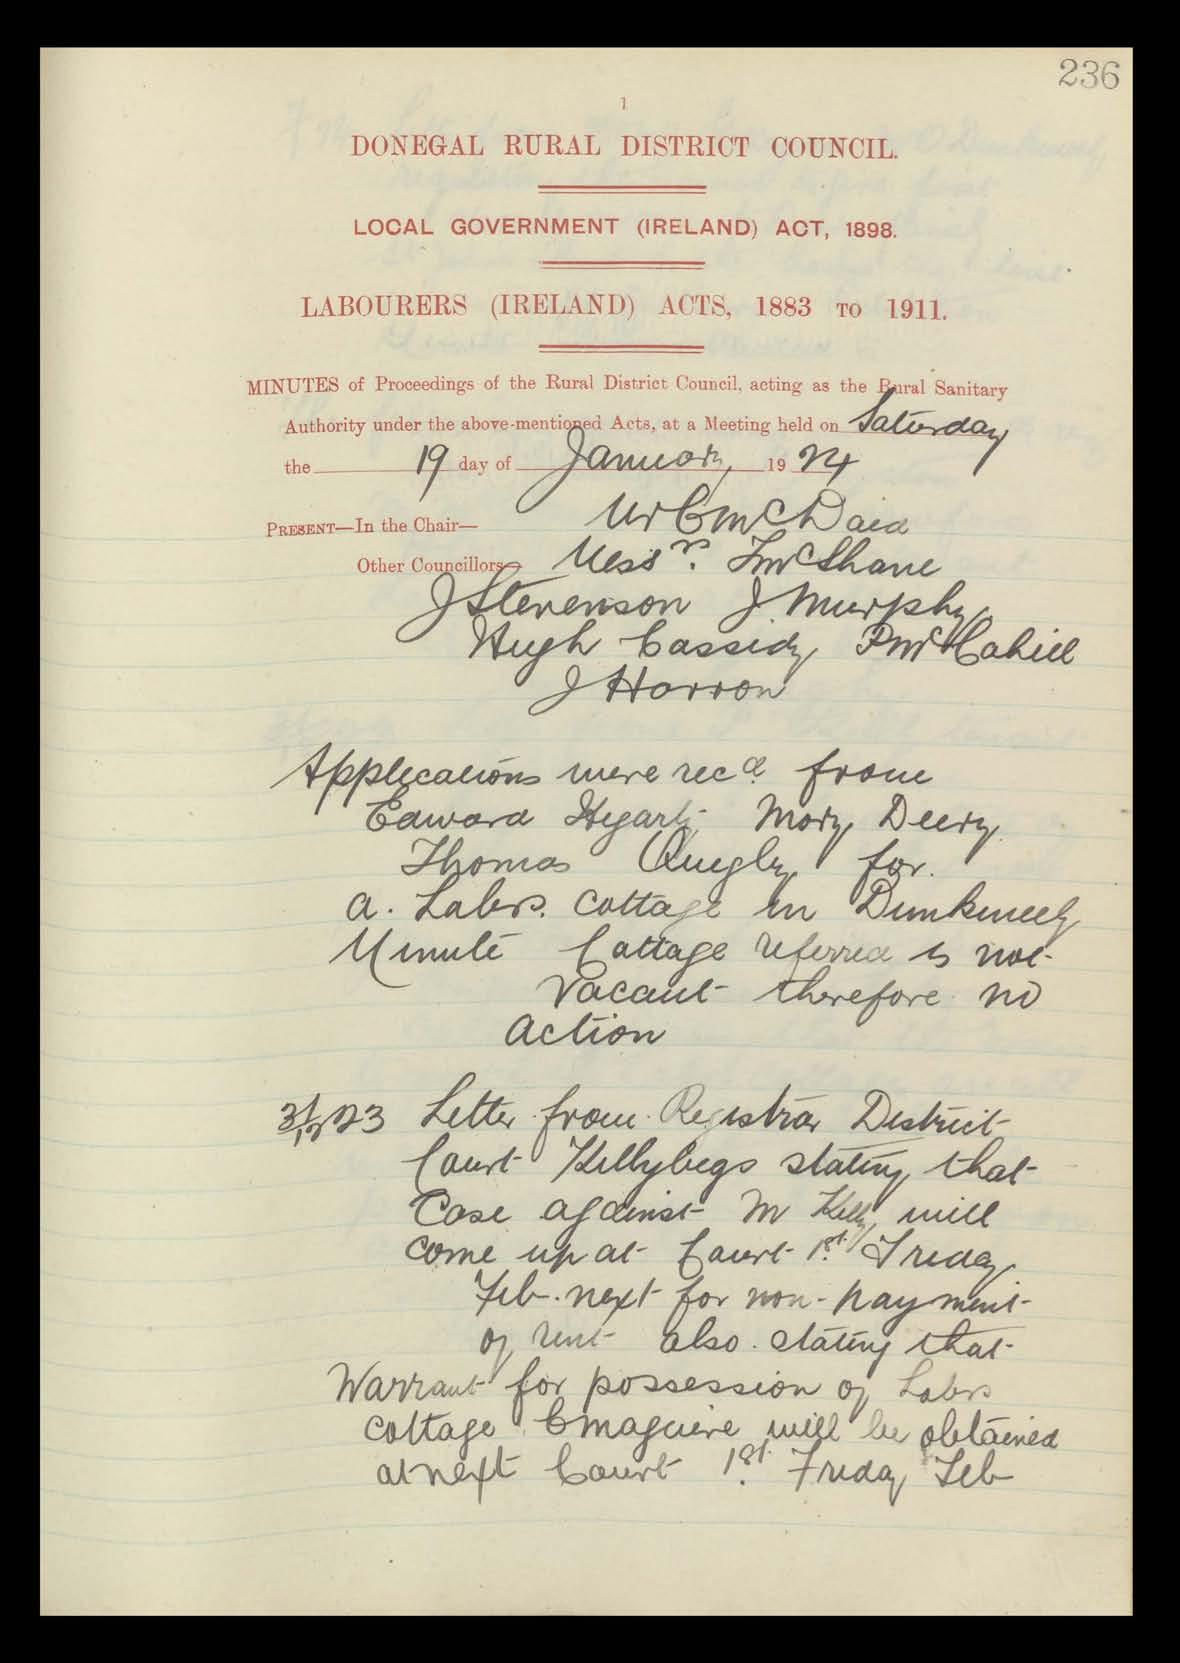 236
1
DONEGAL RURAL DISTRICT COUNCIL.
LOCAL GOVERNMENT (IRELAND) ACT, 1898.
LABOURERS (IRELAND) ACTS, 1883 TO 1911.
MINUTES of Proceedings of the Rural District Council, acting as the Rural Sanitary
Authority under the above-mentioned Acts, at a Meeting held on Saturday
the 19 day of January, 19 24
PRESENT—In the Chair— Mr C McDaid
Other Councillors— Messrs. F McShane
J Stevenson J Murphy
Hugh Cassidy P McCahill
J Harron
Applications were recd. from
Edward Hegarty Mary Deery
Thomas Quigley for
a. Labrs. cottage in Dunkineely
Minute Cottage referred is not
vacant therefore no
action
31/12/23 Letter from Registrar District
Court Killybegs stating that
Case against M Kelly will
come up at Court 1st. Friday
Feb. next for non-payment
of rent also stating that
Warrant for possession of Labrs
cottage C Maguire will be obtained
at next Court 1st. Friday Feb